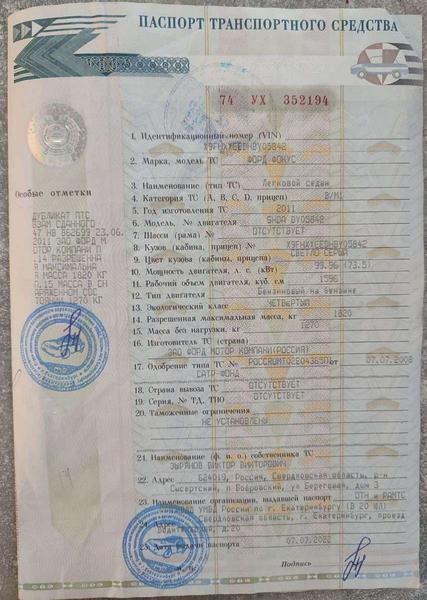 ПАСПОРТ ТРАНСПОРТНОГО СРЕДСТВА
74 УХ 352194
1. Идентификационный номер (VIN)
X9FHXXEEDHBY05842
2. Марка, модель ТС ФОРД ФОКУС
3. Наименование (тип ТС) Легковой седан
4. Категория ТС (А, В, С, D, прицеп) B/M1
5. Год изготовления ТС 2011
6. Модель, № двигателя SHDA BY05842
7. Шасси (рама) № ОТСУТСТВУЕТ
8. Кузов (кабина, прицеп) № X9FHXXEEDHBY05842
9. Цвет кузова (кабины, прицепа) СВЕТЛО СЕРЫЙ
10. Мощность двигателя, л. с. (кВт) 99.96 (73.5)
11. Рабочий объем двигателя, куб. см 1596
12. Тип двигателя Бензиновый на бензине
13. Экологический класс ЧЕТВЕРТЫЙ
14. Разрешенная максимальная масса, кг 1820
15. Масса без нагрузки, кг 1270
16. Изготовитель ТС (страна)
ЗАО ФОРД МОТОР КОМПАНИ(РОССИЯ)
17. Одобрение типа ТС № от 07.07.2008
САТР ФОНД
18. Страна вывоза ТС ОТСУТСТВУЕТ
19. Серия, № ТД, ТПО ОТСУТСТВУЕТ
20. Таможенные ограничения
НЕ УСТАНОВЛЕНЫ
21. Наименование (ф. и. о.) собственника ТС
ЗЫРЯНОВ ВИКТОР ВИКТОРОВИЧ
22. Адрес 624019, Россия, Свердловская область, р-н
Сысертский, п Бобровский, ул Береговая, дом 3
23. Наименование организации, выдавшей паспорт ОТН и РАМТС
УМВД России по г. Екатеринбургу
24. Адрес Свердловская область, г. Екатеринбург, проезд
25. Дата выдачи паспорта 07.07.2022
Подпись
Особые отметки
ДУБЛИКАТ ПТС
ВЗАМ СДАННОГО
47 НВ 862699 23.06.
2011 ЗАО ФОРД М
ОТОР КОМПАНИ П
.14 РАЗРЕШЕННА
Я МАКСИМАЛЬНА
Я МАССА 1820 КГ
П.15 МАССА В СН
АРЯЖЕННОМ СОС
ТОЯНИИ 1270 КГ